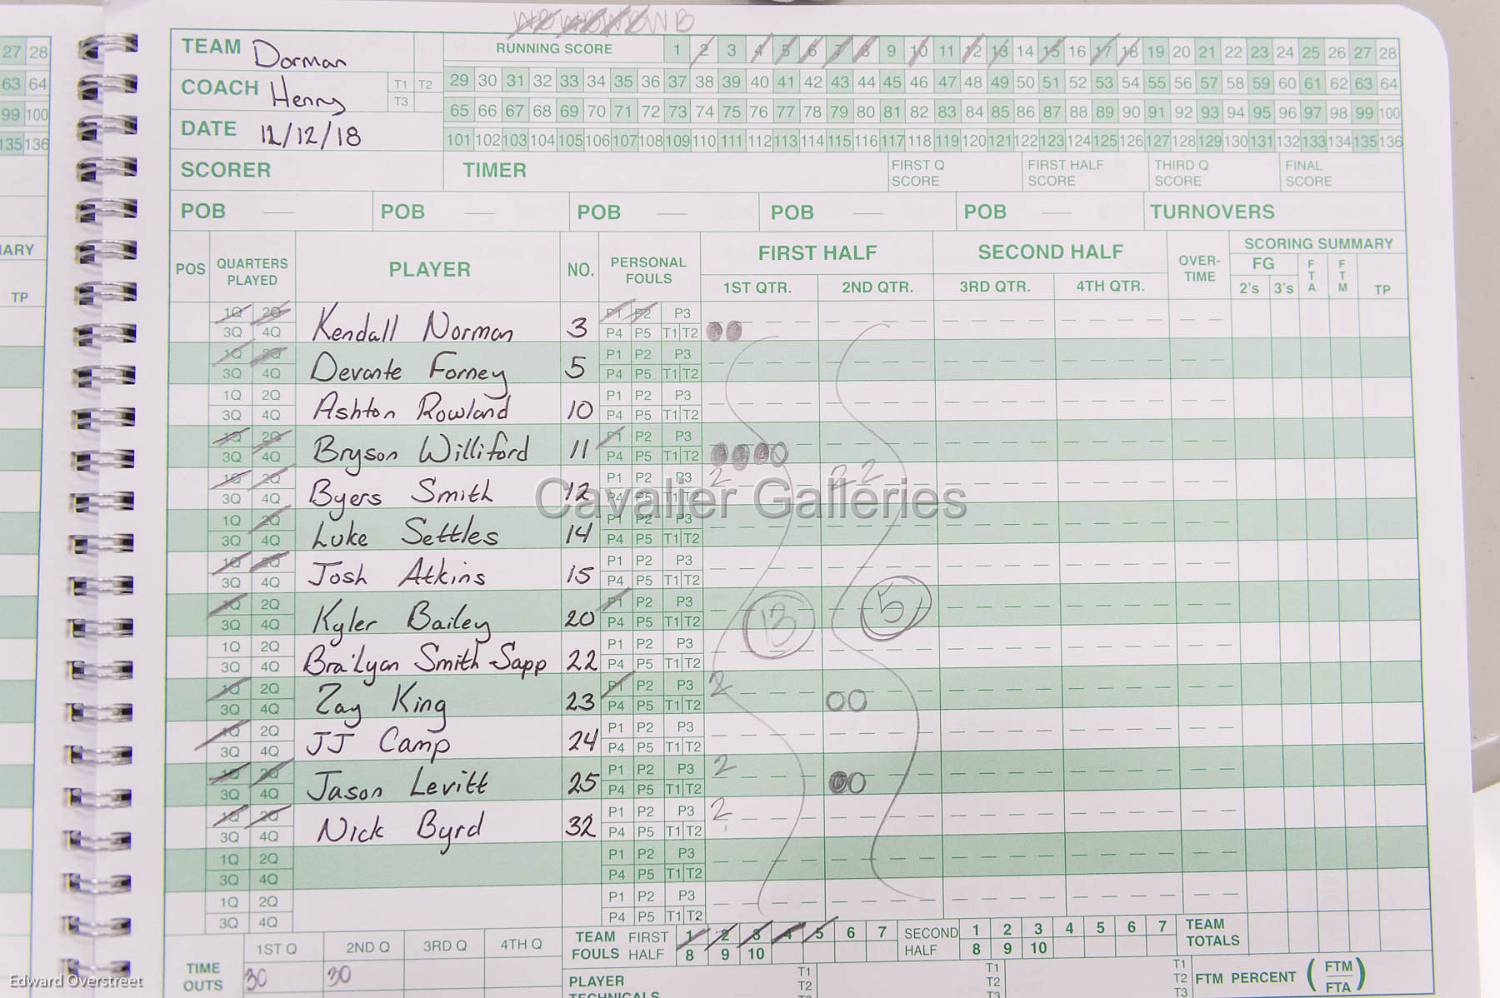 WBWBWBWB
TEAM Dorman
RUNNING SCORE 1 2 3 4 5 6 7 8 9 10 11 12 13 14 15 16 17 18 19 20 21 22 23 24 25 26 27 28
COACH Henry T1 T2 T3
29 30 31 32 33 34 35 36 37 38 39 40 41 42 43 44 45 46 47 48 49 50 51 52 53 54 55 56 57 58 59 60 61 62 63 64
65 66 67 68 69 70 71 72 73 74 75 76 77 78 79 80 81 82 83 84 85 86 87 88 89 90 91 92 93 94 95 96 97 98 99 100
DATE 12/12/18
101 102 103 104 105 106 107 108 109 110 111 112 113 114 115 116 117 118 119 120 121 122 123 124 125 126 127 128 129 130 131 132 133 134 135 136
SCORER TIMER FIRST Q SCORE FIRST HALF SCORE THIRD Q SCORE FINAL SCORE
POB POB POB POB POB TURNOVERS
POS QUARTERS PLAYED PLAYER NO. PERSONAL FOULS FIRST HALF SECOND HALF OVER-TIME SCORING SUMMARY
1ST QTR. 2ND QTR. 3RD QTR. 4TH QTR. FG 2's 3's FTA FTM TP
1Q 2Q 3Q 4Q Kendall Norman 3 P1 P2 P3 P4 P5 T1 T2
1Q 2Q 3Q 4Q Devante Forney 5 P1 P2 P3 P4 P5 T1 T2
1Q 2Q 3Q 4Q Ashton Rowland 10 P1 P2 P3 P4 P5 T1 T2
1Q 2Q 3Q 4Q Bryson Williford 11 P1 P2 P3 P4 P5 T1 T2
1Q 2Q 3Q 4Q Byers Smith 12 P1 P2 P3 P4 P5 T1 T2 2 2 2
Cavalier Galleries
1Q 2Q 3Q 4Q Luke Settles 14 P1 P2 P3 P4 P5 T1 T2
1Q 2Q 3Q 4Q Josh Atkins 15 P1 P2 P3 P4 P5 T1 T2
1Q 2Q 3Q 4Q Kyler Bailey 20 P1 P2 P3 P4 P5 T1 T2 13 5
1Q 2Q 3Q 4Q Bra'Lyan Smith-Sapp 22 P1 P2 P3 P4 P5 T1 T2
1Q 2Q 3Q 4Q Zay King 23 P1 P2 P3 P4 P5 T1 T2 2
1Q 2Q 3Q 4Q JJ Camp 24 P1 P2 P3 P4 P5 T1 T2
1Q 2Q 3Q 4Q Jason Levitt 25 P1 P2 P3 P4 P5 T1 T2 2
1Q 2Q 3Q 4Q Nick Byrd 32 P1 P2 P3 P4 P5 T1 T2 2
1Q 2Q 3Q 4Q P1 P2 P3 P4 P5 T1 T2
1Q 2Q 3Q 4Q P1 P2 P3 P4 P5 T1 T2
1ST Q 2ND Q 3RD Q 4TH Q
TIME OUTS 30 30
TEAM FOULS FIRST HALF 1 2 3 4 5 6 7 8 9 10 SECOND HALF 1 2 3 4 5 6 7 8 9 10 TEAM TOTALS
PLAYER TECHNICALS T1 T2 T1 T2 T3 T1 T2 T3 FTM PERCENT (FTM FTA)
27 28
63 64
99 100
135 136
TP
Edward Overstreet